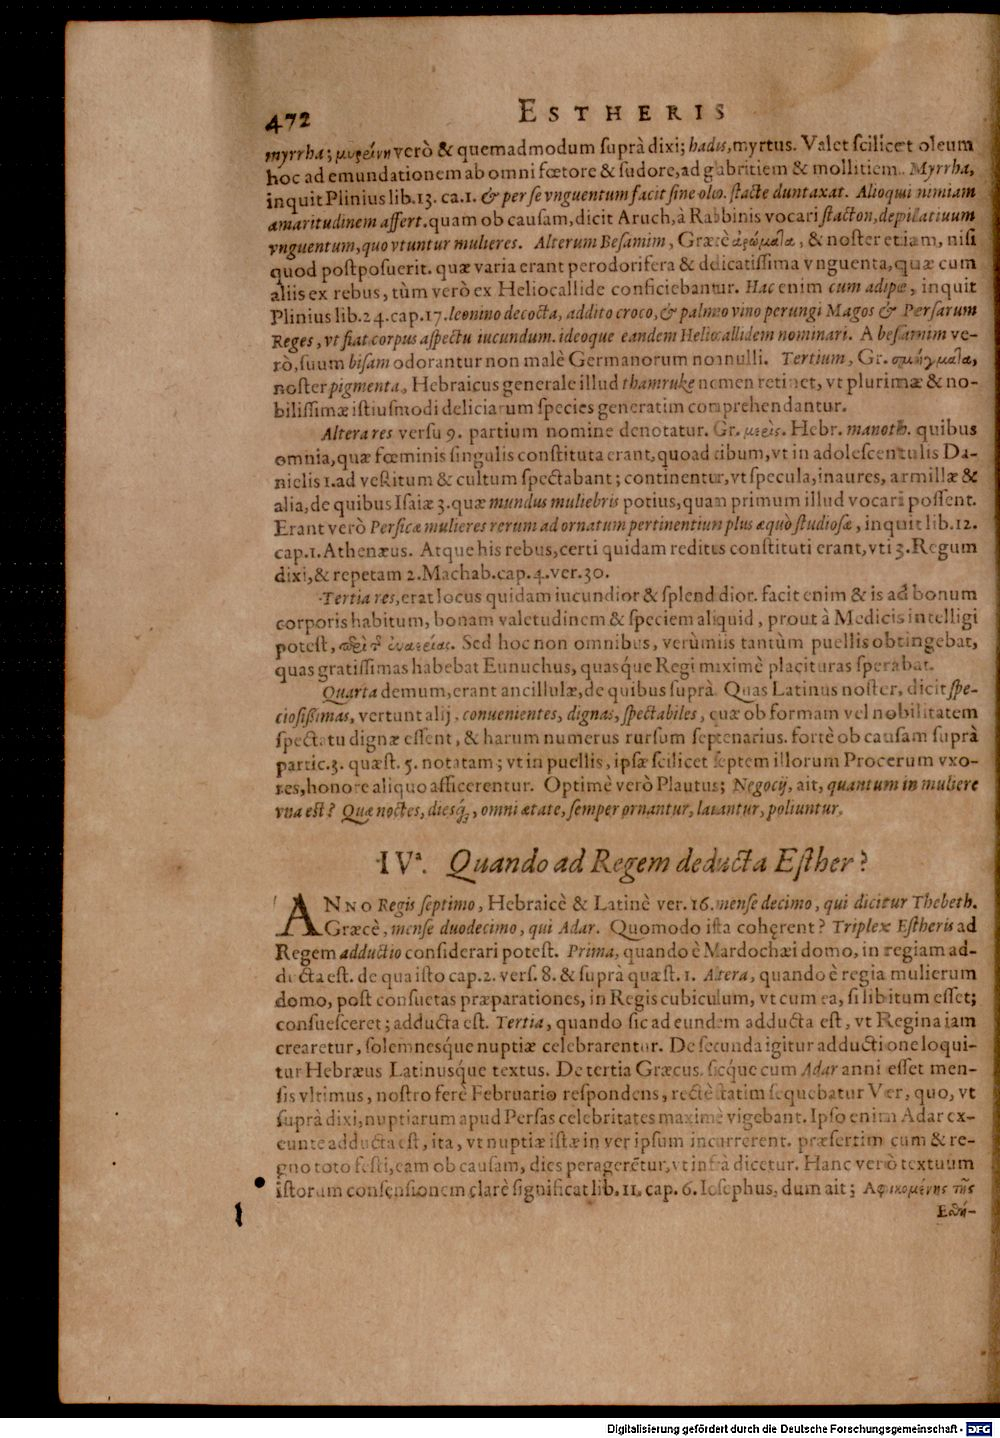 472 ESTHERIS
myrrha; μυρσίνη verò & quemadmodum suprà dixi; hadas, myrtus. Valet scilicet oleum
hoc ad emundationem ab omni fœtore & sudore, ad glabritiem & mollitiem. Myrrha,
inquit Plinius lib. 13. ca. 1. & per se vnguentum facit sine oleo. stacte duntaxat. Alioqui nimiam
amaritudinem affert. quam ob causam, dicit Aruch, à Rabbinis vocari stacton, depilatiuum
vnguentum, quo vtuntur mulieres. Alterum Besamim, Græcè ἀρώματα, & noster etiam, nisi
quod postposuerit. quæ varia erant perodorifera & delicatissima vnguenta, quæ cum
aliis ex rebus, tùm verò ex Heliocallide conficiebantur. Hac enim cum adipe, inquit
Plinius lib. 24. cap. 17. leonino decocta, addito croco, & palmeo vino perungi Magos & Persarum
Reges, vt fiat corpus aspectu iucundum. ideoque eandem Heliocallidem nominari. A besamim ve-
rò, suum bisam odorantur non malè Germanorum nonnulli. Tertium, Gr. σμήγματα,
noster pigmenta, Hebraicus generale illud thamruke nomen retinet, vt plurimæ & no-
bilissimæ istiusmodi deliciarum species generatim comprehendantur.
Altera res versu 9. partium nomine denotatur. Gr. μερίς. Hebr. manoth. quibus
omnia, quæ fœminis singulis constituta erant, quoad cibum, vt in adolescentulis Da-
nielis 1. ad vestitum & cultum spectabant; continentur, vt specula, inaures, armillæ &
alia, de quibus Isaiæ 3. quæ mundus muliebris potius, quam primum illud vocari possent.
Erant verò Persicæ mulieres rerum ad ornatum pertinentium plus æquò studiosæ, inquit lib. 12.
cap. 1. Athenæus. Atque his rebus, certi quidam reditus constituti erant, vti 3. Regum
dixi, & repetam 2. Machab. cap. 4. ver. 30.
Tertia res, erat locus quidam iucundior & splendidior. facit enim & is ad bonum
corporis habitum, bonam valetudinem & speciem aliquid, prout à Medicis intelligi
potest, Sed hoc non omnibus, verùm iis tantùm puellis obtingebat,
quas gratissimas habebat Eunuchus, quasq́ue Regi maximè placituras sperabat.
Quarta demum, erant ancillulæ, de quibus suprà. Quas Latinus noster, dicit spe-
ciosißimas, vertunt alij, conuenientes, dignas, spectabiles, quæ ob formam vel nobilitatem
spectatu dignæ essent, & harum numerus rursum septenarius. fortè ob causam suprà
partic. 3. quæst. 5. notatam; vt in puellis, ipsæ scilicet septem illorum Procerum vxo-
res, honore aliquo afficerentur. Optimè verò Plautus; Negocij, ait, quantum in muliere
vna est? Quæ noctes, diesq́;, omni ætate, semper ornantur, lauantur, poliuntur.
IVª. Quando ad Regem deducta Esther?
ANNO Regis septimo, Hebraicè & Latinè ver. 16. mense decimo, qui dicitur Thebeth.
Græcè, mense duodecimo, qui Adar. Quomodo ista cohęrent? Triplex Estheris ad
Regem adductio considerari potest. Prima, quando è Mardochæi domo, in regiam ad-
ducta est. de qua isto cap. 2. vers. 8. & suprà quæst. 1. Altera, quando è regia mulierum
domo, post consuetas præparationes, in Regis cubiculum, vt cum ea, si libitum esset;
consuesceret; adducta est. Tertia, quando sic ad eundem adducta est, vt Regina iam
crearetur, solemnesq́ue nuptiæ celebrarentur. De secunda igitur adductione loqui-
tur Hebræus Latinusq́ue textus. De tertia Græcus. sicq́ue cum Adar anni esset men-
sis vltimus, nostro ferè Februario respondens, rectè statim sequebatur Ver, quo, vt
suprà dixi, nuptiarum apud Persas celebritates maximè vigebant. Ipso enim Adar ex-
eunte adducta est, ita, vt nuptiæ istæ in ver ipsum incurrerent. præsertim cum & re-
gno toto festi, eam ob causam, dies peragerētur, vt infrà dicetur. Hanc verò textuum
istorum consensionem clarè significat lib. 11. cap. 6. Iosephus, dum ait; Ἀφικομένης τῆς
Ἐσθή-
Digitalisierung gefördert durch die Deutsche Forschungsgemeinschaft - DFG